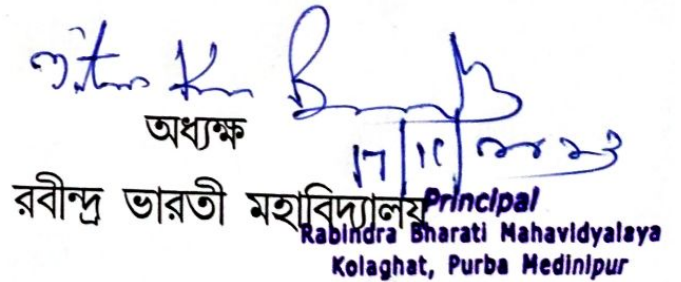 অধ্যক্ষ
17/11/২০২৩
রবীন্দ্র ভারতী মহাবিদ্যালয়
Principal
Rabindra Bharati Mahavidyalaya
Kolaghat, Purba Medinipur